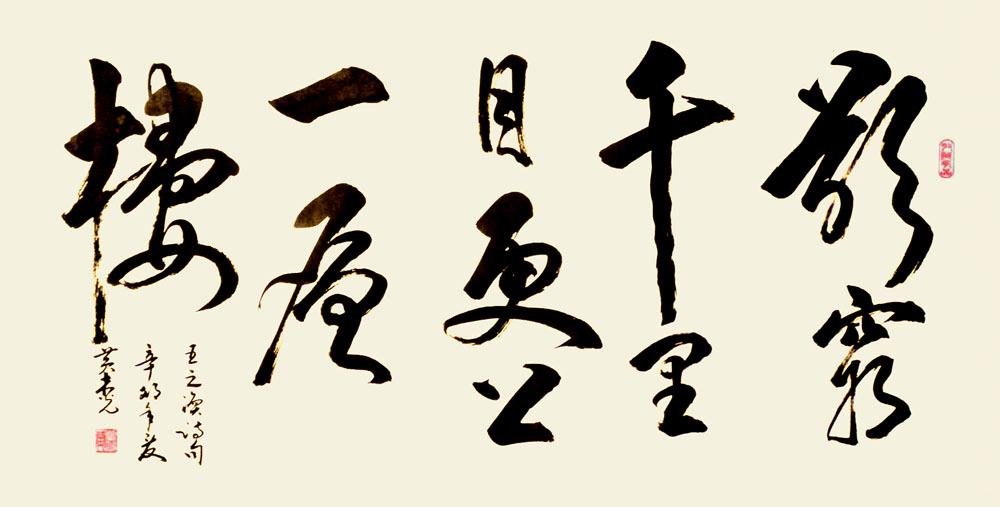 欲窮
千里
目更上
一層
樓
王之渙詩句
辛卯年夏